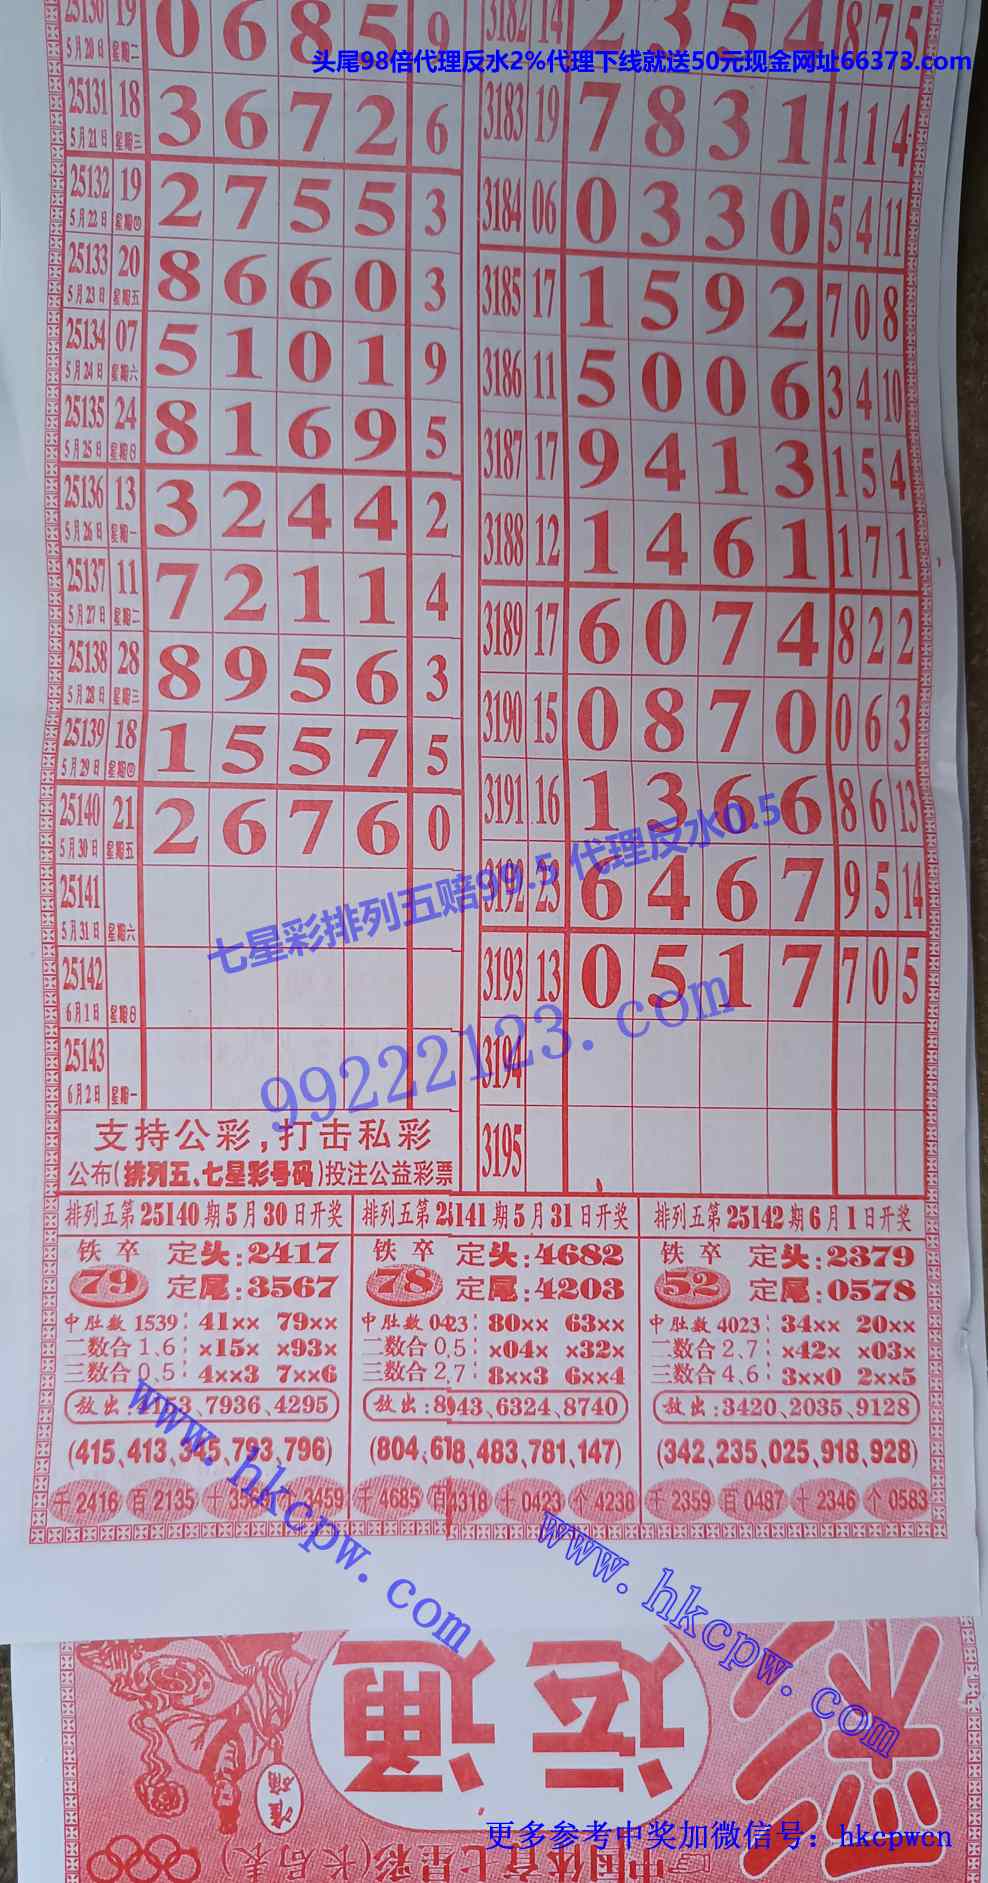 25130 19 0 6 8 5 9
5月20日 星期二
头尾98倍代理反水2%代理下线就送50元现金网址66373.com
25131 18 3 6 7 2 6
5月21日 星期三
25132 19 2 7 5 5 3
5月22日 星期四
25133 20 8 6 6 0 3
5月23日 星期五
25134 07 5 1 0 1 9
5月24日 星期六
25135 24 8 1 6 9 5
5月25日 星期日
25136 13 3 2 4 4 2
5月26日 星期一
25137 11 7 2 1 1 4
5月27日 星期二
25138 28 8 9 5 6 3
5月28日 星期三
25139 18 1 5 5 7 5
5月29日 星期四
25140 21 2 6 7 6 0
5月30日 星期五
25141
5月31日 星期六
25142
6月1日 星期日
25143
6月2日 星期一
3182 14 2 3 5 4 8 7 5
3183 19 7 8 3 1 1 1 4
3184 06 0 3 3 0 5 4 11
3185 17 1 5 9 2 7 0 8
3186 11 5 0 0 6 3 4 10
3187 17 9 4 1 3 1 5 4
3188 12 1 4 6 1 1 7 1
3189 17 6 0 7 4 8 2 2
3190 15 0 8 7 0 0 6 3
3191 16 1 3 6 6 8 6 13
3192 23 6 4 6 7 9 5 14
3193 13 0 5 1 7 7 0 5
3194
3195
七星彩排列五赔99.5 代理反水0.5
99222123.com
支持公彩,打击私彩
公布(排列五、七星彩号码)投注公益彩票
排列五第25140期5月30日开奖
铁卒 定头:2417
79 定尾:3567
中肚数1539: 41×× 79××
二数合1,6: ×15× ×93×
三数合0,5: 4××3 7××6
放出:4153、7936、4295
(415,413,345,793,796)
千2416 百2135 十 3459
排列五第25141期5月31日开奖
铁卒 定头:4682
78 定尾:4203
中肚数0423: 80×× 63××
二数合0,5: ×04× ×32×
三数合2,7: 8××3 6××4
放出:8043、6324、8740
(804,678,483,781,147)
千4685 百4318 十0423 个4238
排列五第25142期6月1日开奖
铁卒 定头:2379
52 定尾:0578
中肚数4023: 34×× 20××
二数合2,7: ×42× ×03×
三数合4,6: 3××0 2××5
放出:3420、2035、9128
(342,235,025,918,928)
千2359 百0487 十2346 个0583
www.hkcpw.com
www.hkcpw.com
彩
运通
准确
中国体育七星彩(长局表
更多参考中奖加微信号：hkcpwcn